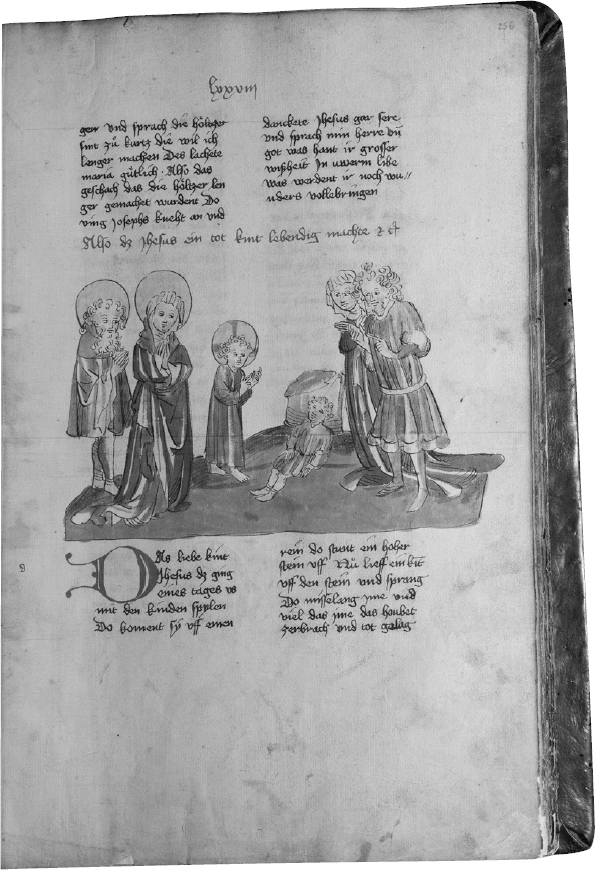 256
lxxviii
gen vnd sprach die höltzer
sint zů kurtz die wil ich
lenger machen Des lachete
maria gůtlich · Also das
geschach das die höltzer len
ger gemachet wurdent Do
ving Josephs kneht an vnd
danckete Jhesus gar sere
vnd sprach min herre vn̄
got was hant ir grosser
wißheit In uwerm libe
was werdent ir noch wu//
nders vollebringen
Also dz Jhesus ein tot kint lebendig machte
Das liebe kint
Jhesus dz ging
eines tages vs
mit den kinden spylen
Do koment sÿ vff einen
rein do stunt ein hoher
stein vff Nů lieff ein kīt
vff den stein vnd sprang
Do misselang jme vnd
viel das jme das houbet
zerbrach vnd tot gelag